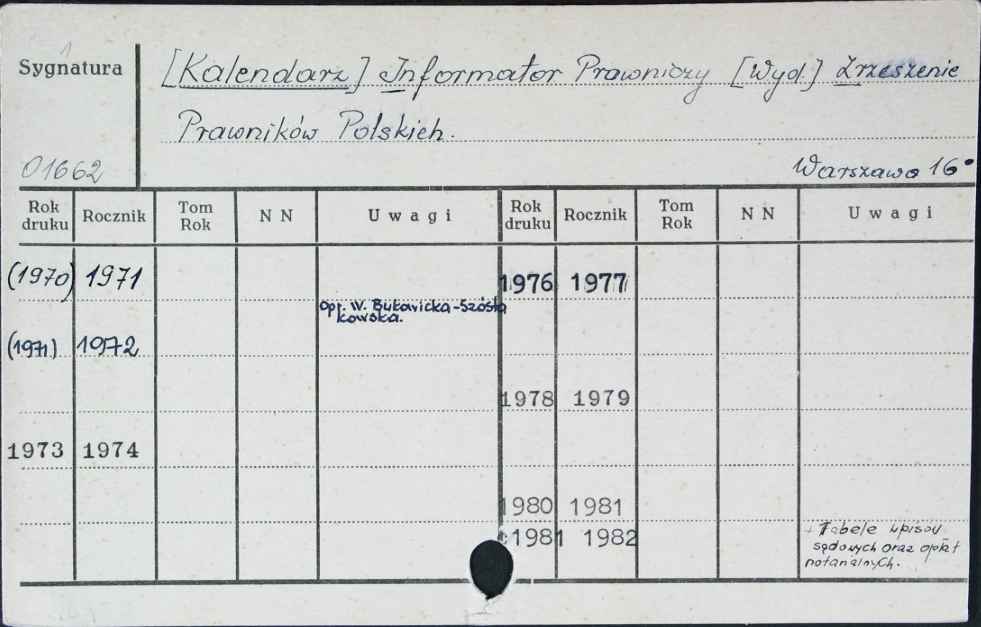 1
Sygnatura
[Kalendarz] Informator Prawniczy [Wyd.] Zrzeszenie
Prawników Polskich.
01662
Warszawa 16°
Rok druku Rocznik Tom Rok N N Uwagi Rok druku Rocznik Tom Rok N N Uwagi
(1970) 1971 1976 1977
Opr. W. Bukowicka-Szóstakowska.
(1971) 1972
1978 1979
1973 1974
1980 1981
c1981 1982
+ Tabele wpisów
sądowych oraz opłat
notarialnych.